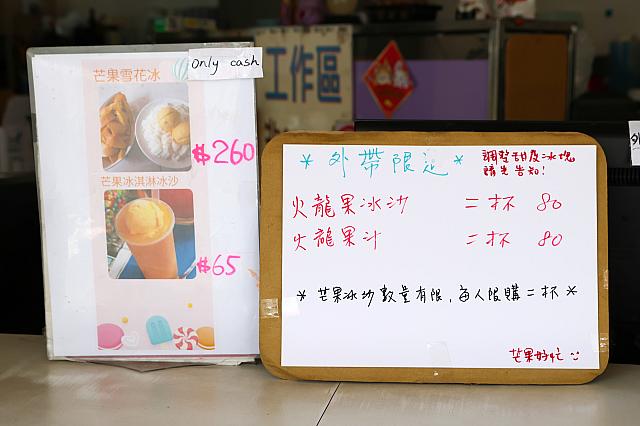 工作區
only cash
芒果雪花冰
$260
芒果冰淇淋冰沙
$65
* 外帶限定 *
調整甜度冰塊
請先告知!
火龍果冰沙 二杯 80
火龍果汁 二杯 80
* 芒果冰沙數量有限,每人限購二杯 *
芒果好忙